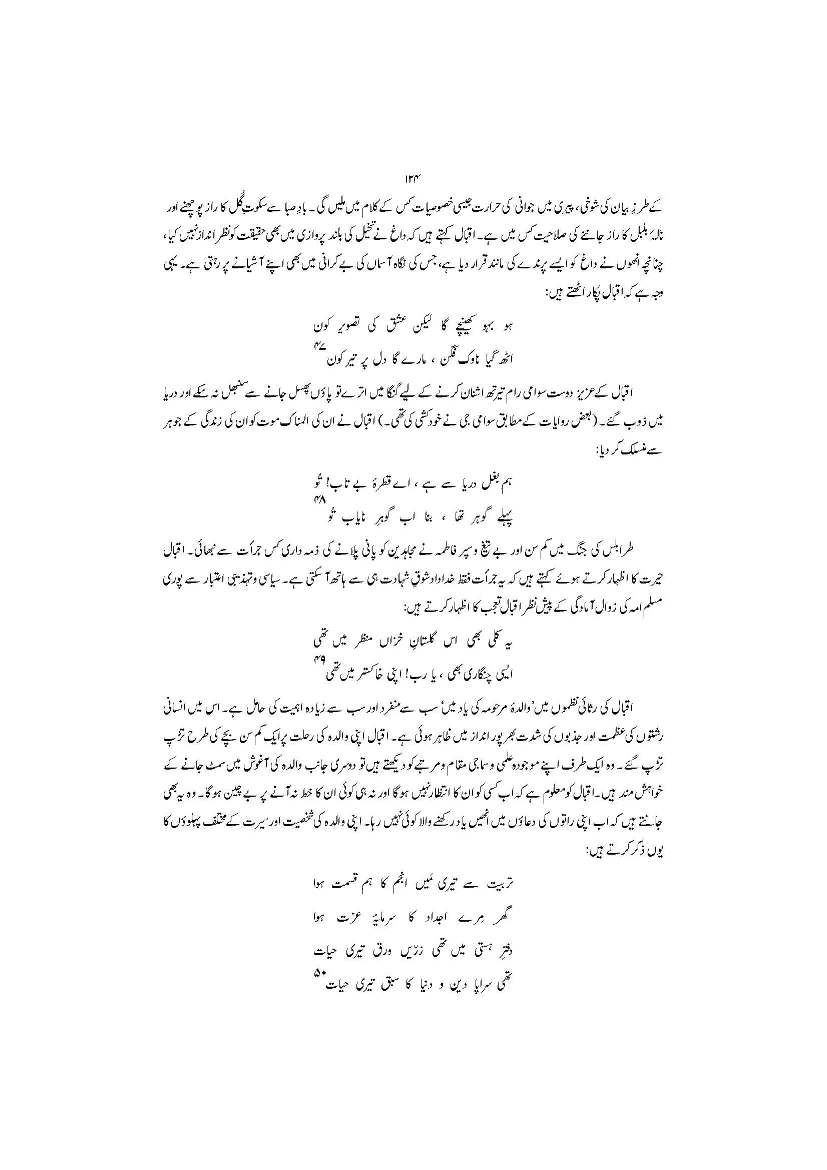 ۱۲۴
کے طرزِ بیان کی شوخی، پیری میں جوانی کی حرارت جیسی خصوصیات کس کے کلام میں ملیں گی۔ بادِ صبا سے سکوتِ گُل کا راز پوچھنے اور
نالۂ بلبل کا راز جاننے کی صلاحیت کس میں ہے۔ اقبال کہتے ہیں کہ داغ نے تخیل کی بلند پروازی میں بھی حقیقت کو نظر انداز نہیں کیا،
چنانچہ انھوں نے داغ کو ایسے پرندے کی مانند قرار دیا ہے، جس کی نگاہ آساں کی بے کرانی میں بھی اپنے آشیانے پر رہتی ہے۔ یہی
وجہ ہے کہ اقبال پکار اٹھتے ہیں:
ہو بہو کھینچے گا لیکن عشق کی تصویر کون
اٹھ گیا ناوک فگن ، مارے گا دل پر تیر کون۴۷
اقبال کے عزیز دوست سوامی رام تیرتھ اشنان کرنے کے لیے گنگا میں اترے تو پاؤں پھسل جانے سے سنبھل نہ سکے اور دریا
میں ڈوب گئے۔ (بعض روایات کے مطابق سوامی جی نے خودکشی کی تھی۔) اقبال نے ان کی المناک موت کو ان کی زندگی کے جوہر
سے منسلک کر دیا:
ہم بغل دریا سے ہے ، اے قطرۂ بے تاب! تُو
پہلے گوہر تھا ، بنا اب گوہرِ نایاب تُو۴۸
طرابلس کی جنگ میں کم سن اور بے تیغ و سپر فاطمہ نے مجاہدین کو پانی پلانے کی ذمہ داری کس جرأت سے نبھائی۔ اقبال
حیرت کا اظہار کرتے ہوئے کہتے ہیں کہ یہ جرأت فقط خداداد شوقِ شہادت ہی سے ہاتھ آ سکتی ہے۔ سیاسی و تہذیبی اعتبار سے پوری
مسلم امہ کی زوال آمادگی کے پیش نظر اقبال تعجب کا اظہار کرتے ہیں:
یہ کلی بھی اس گلستانِ خزاں منظر میں تھی
ایسی چنگاری بھی ، یا رب! اپنی خاکستر میں تھی۴۹
اقبال کی رثائی نظموں میں ’والدۂ مرحومہ کی یاد میں‘ سب سے منفرد اور سب سے زیادہ اہمیت کی حامل ہے۔ اس میں انسانی
رشتوں کی عظمت اور جذبوں کی شدت بھرپور انداز میں ظاہر ہوئی ہے۔ اقبال اپنی والدہ کی رحلت پر ایک کم سن بچے کی طرح تڑپ
تڑپ گئے۔ وہ ایک طرف اپنے موجودہ علمی و سماجی مقام و مرتبے کو دیکھتے ہیں تو دوسری جانب والدہ کی آغوش میں سمٹ جانے کے
خواہش مند ہیں۔ اقبال کو معلوم ہے کہ اب کسی کو ان کا انتظار نہیں ہوگا اور نہ ہی کوئی ان کا خط نہ آنے پر بے چین ہوگا۔ وہ یہ بھی
جانتے ہیں کہ اب اپنی راتوں کی دعاؤں میں انھیں یاد رکھنے والا کوئی نہیں رہا۔ اپنی والدہ کی شخصیت اور سیرت کے مختلف پہلوؤں کا
یوں ذکر کرتے ہیں:
تربیت سے تیری مَیں انجم کا ہم قسمت ہوا
گھر مِرے اجداد کا سرمایۂ عزت ہوا
دفترِ ہستی میں تھی زرّیں ورق تیری حیات
تھی سراپا دین و دنیا کا سبق تیری حیات۵۰